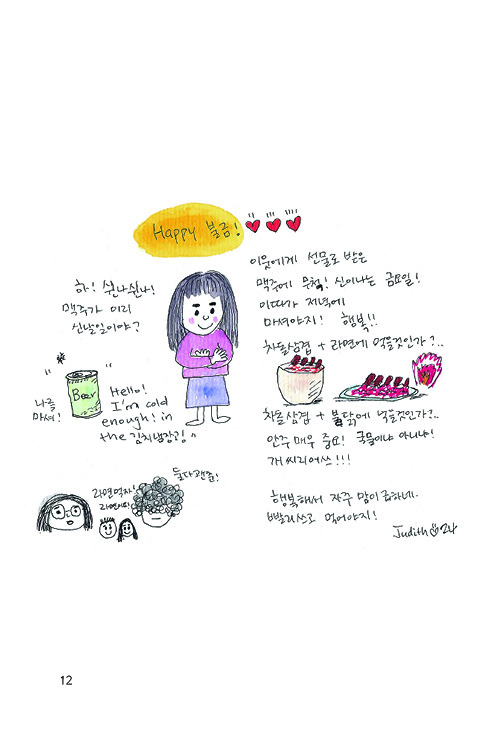 Happy 불금!
이웃에게 선물로 받은
맥주에 무척! 신이나는 금요일!
이따가 저녁에
마셔야지! 행복!!
차돌삼겹 + 라면에 먹을것인가?..
차돌삼겹 + 불닭에 먹을것인가?..
안주 매우 중요! 국물이냐 아니냐!
개씨리어쓰!!!
행복해서 자꾸 맘이 급하네.
빨리쓰고 먹어야지!
Judith 24
하! 쉰나쉰나!
맥주가 이리
신날일이야?
나를
마셔!
Beer
Hello!
I'm cold
enough! in
the 김치냉장고!
라면먹자!
라면이지!
둘다괜춘!
12